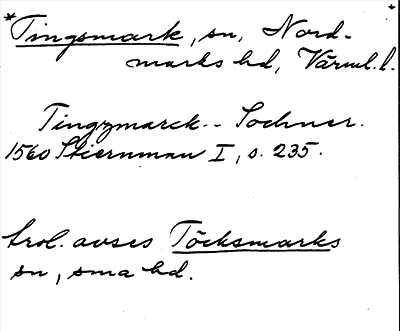 *Tingsmark, sn, Nord-
marks hd, Värml. l.
Tingzmarck-- Sochner.
1560 Stiernman I, s. 235.
trol. avses Töcksmarks
sn, sma hd.